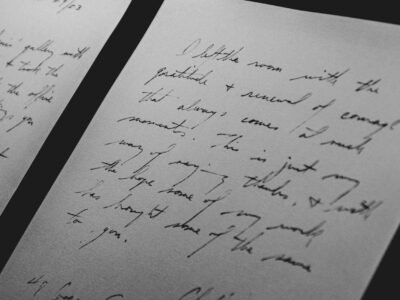 /03
gallery with
& took the
the office
you
I left the room with the
gratitude & renewal of courage
that always comes at such
moments. This is just my
way of saying thanks, & with
the hope some of my work
has brought some of the same
to you.